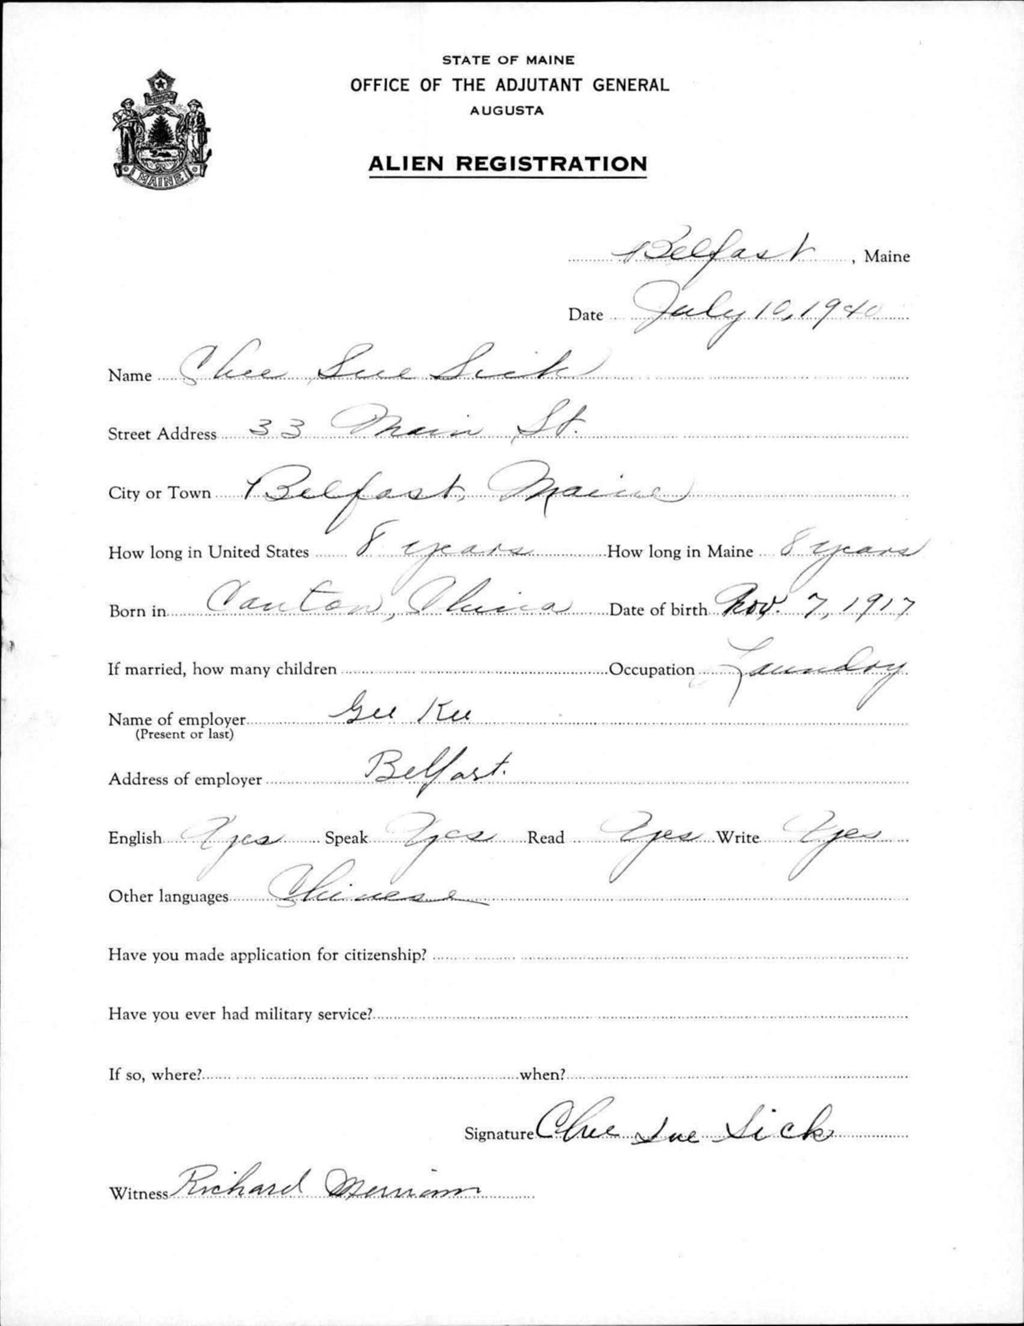 STATE OF MAINE
OFFICE OF THE ADJUTANT GENERAL
AUGUSTA
ALIEN REGISTRATION
MAINE
Belfast, Maine
Date July 10, 1940
Name Chee Sue Sick
Street Address 33 Main St.
City or Town Belfast, Maine
How long in United States 8 years How long in Maine 8 years
Born in Canton, China Date of birth Nov. 7, 1917
If married, how many children Occupation Laundry
Name of employer Gee Kee
(Present or last)
Address of employer Belfast.
English Yes Speak Yes Read Yes Write Yes
Other languages Chinese
Have you made application for citizenship?
Have you ever had military service?
If so, where? when?
Signature Chee Sue Sick
Witness Richard Merriam